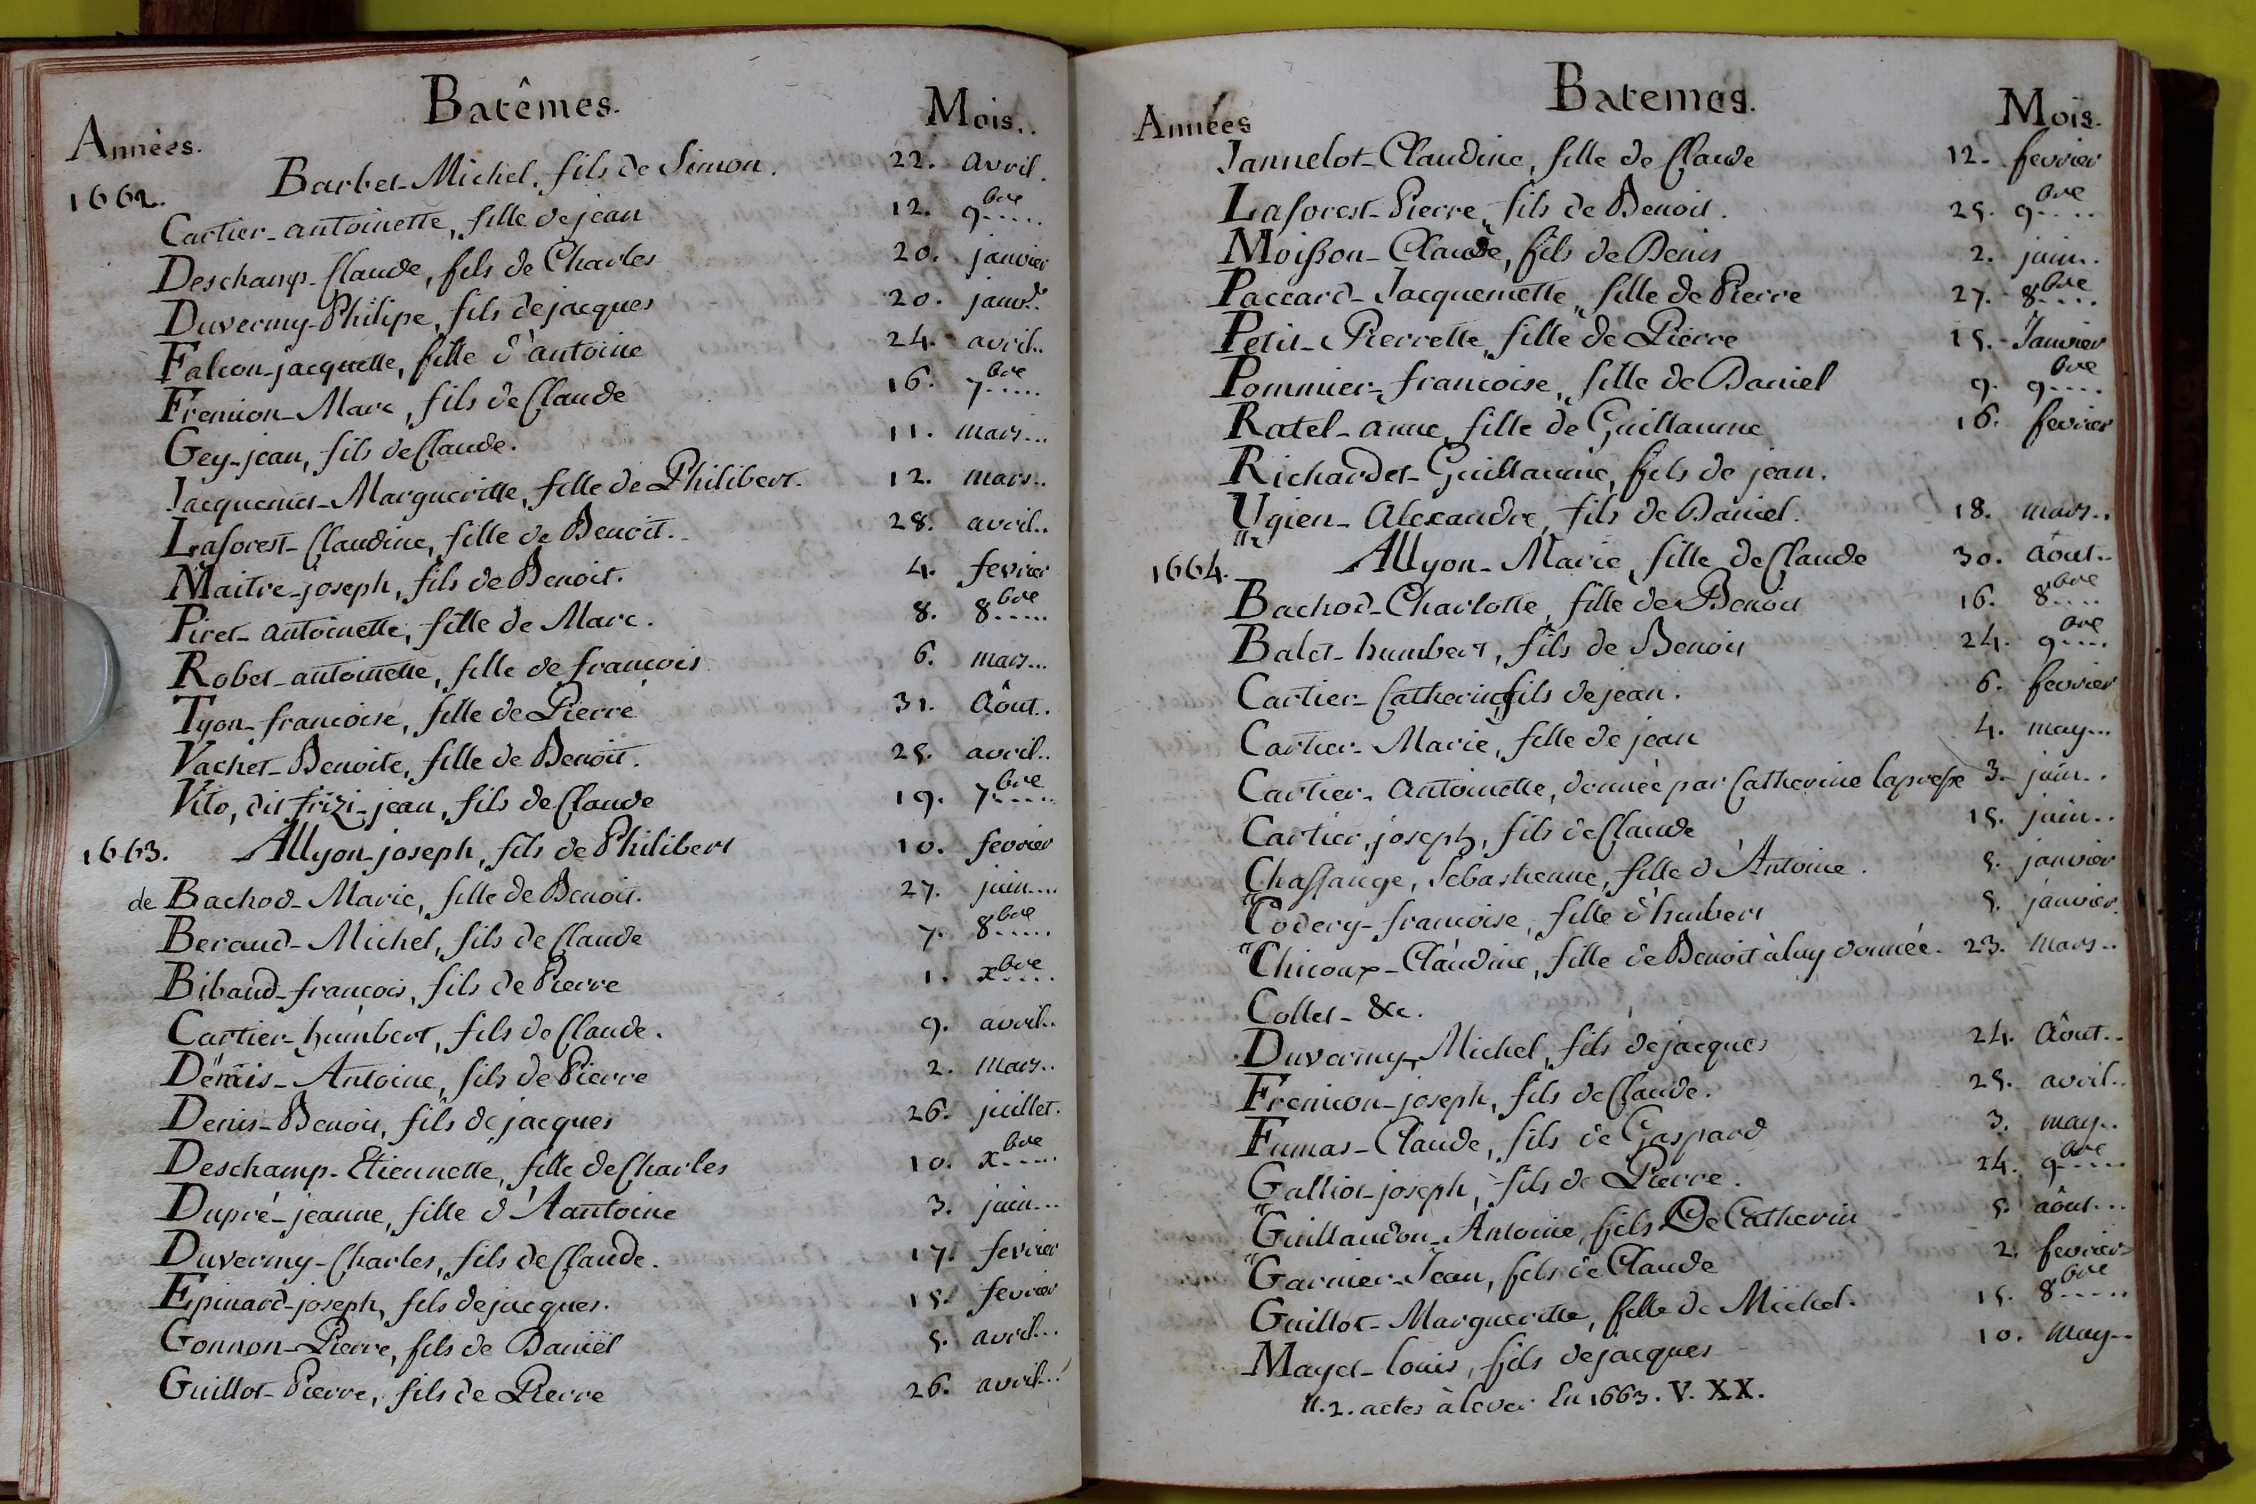 Batêmes.
Années. Mois..
1662. Barbet-Michel, fils de Simon. 22. avril.
Cartier-antoinette, fille de jean 12. 9bre.....
Deschamp-Claude, fils de Charles 20. janvier
Duvermy-Philipe, fils de jacques 20. janvr.
Falcon-jacquette, fille d'antoine 24. avril..
Fremion-Marc, fils de Claude 16. 7bre.....
Gey-jean, fils de Claude. 11. mars...
Jacquemet-Margueritte, fille de Philibert. 12. mars..
Laforest-Claudine, fille de Benoit. 28. avril..
Maitre-joseph, fils de Benoit. 4. fevrier
Piret-antoinette, fille de Marc. 8. 8bre.....
Robet-antoinette, fille de françois 6. mars...
Tyon-francoise, fille de Pierre 31. Aôut..
Vachet-Benoite, fille de Benoit. 25. avril..
Vito, dit frizi-jean, fils de Claude 19. 7bre.....
1663. Allyon-joseph, fils de Philibert 10. fevrier
de Bachod-Marie, fille de Benoit. 27. juin....
Beraud-Michel, fils de Claude 7. 8bre.....
Bibaud-françois, fils de Pierre 1. xbre.....
Cartier-humbert, fils de Claude. 9. avril..
Denis-Antoine, fils de Pierre 2. mars..
Denis-Benoit, fils de jacques 26. juillet.
Deschamp-Etiennette, fille de Charles 10. xbre.....
Dupré-jeanne, fille d'Aantoine 3. juin...
Duvermy-Charles, fils de Claude. 17. fevrier
Epinard-joseph, fils de jacques. 15. fevrier
Gonnon-Pierre, fils de Daniel 5. avril...
Guillot-Pierre, fils de Pierre 26. avril...
Batemes.
Années Mois.
Jannelot-Claudine, fille de Claude 12. fevrier
Laforest-Pierre, fils de Benoit. 25. 9bre.....
Moißon-Claude, fils de Denis 2. juin..
Paccard-Jacquemette, fille de Pierre 27. 8bre.....
Petit-Pierrette, fille de Pierre 15. Janvier
Pommier-francoise, fille de Daniel 9. 9bre.....
Ratel-anne, fille de Guillaume 16. fevrier
Richardet-Guillaume, fils de jean.
Ugien-Alexandre, fils de Daniel. 18. mars..
1664. Allyon-Marie, fille de Claude 30. Aôut..
Bachod-Charlotte, fille de Benoit 16. 8bre....
Balet-humbert, fils de Benoit 24. 9bre.....
Cartier-Catherin, fils de jean. 6. fevrier
Cartier-Marie, fille de jean 4. may...
Cartier-Antoinette, donnée par Catherine 3. juin..
Cartier, joseph, fils de Claude 15. juin..
Chassange, Sebastienne, fille d'Antoine. 5. janvier
"Codery-francoise, fille d'humbert 5. janvier.
"Chicoux-Claudine, fille de Benoit à luy donnée. 23. Mars..
Collet-&c.
Duvermy-Michel, fils de jacques 24. Aôut..
Fremion-joseph, fils de Claude. 25. avril..
Fumas-Claude, fils de Gaspard 3. may..
Galliot-joseph, fils de Pierre. 24. 9bre.....
"Guillaudon-Antoine, fils De Catherin 5. aôut...
"Garnier-Jean, fils de Claude 2. fevrier
Guillot-Margueritte, fille de Michel. 15. 8bre.....
Mayet-louis, fils de jacques 10. May..
2. actes à lever En 1663. V. XX.